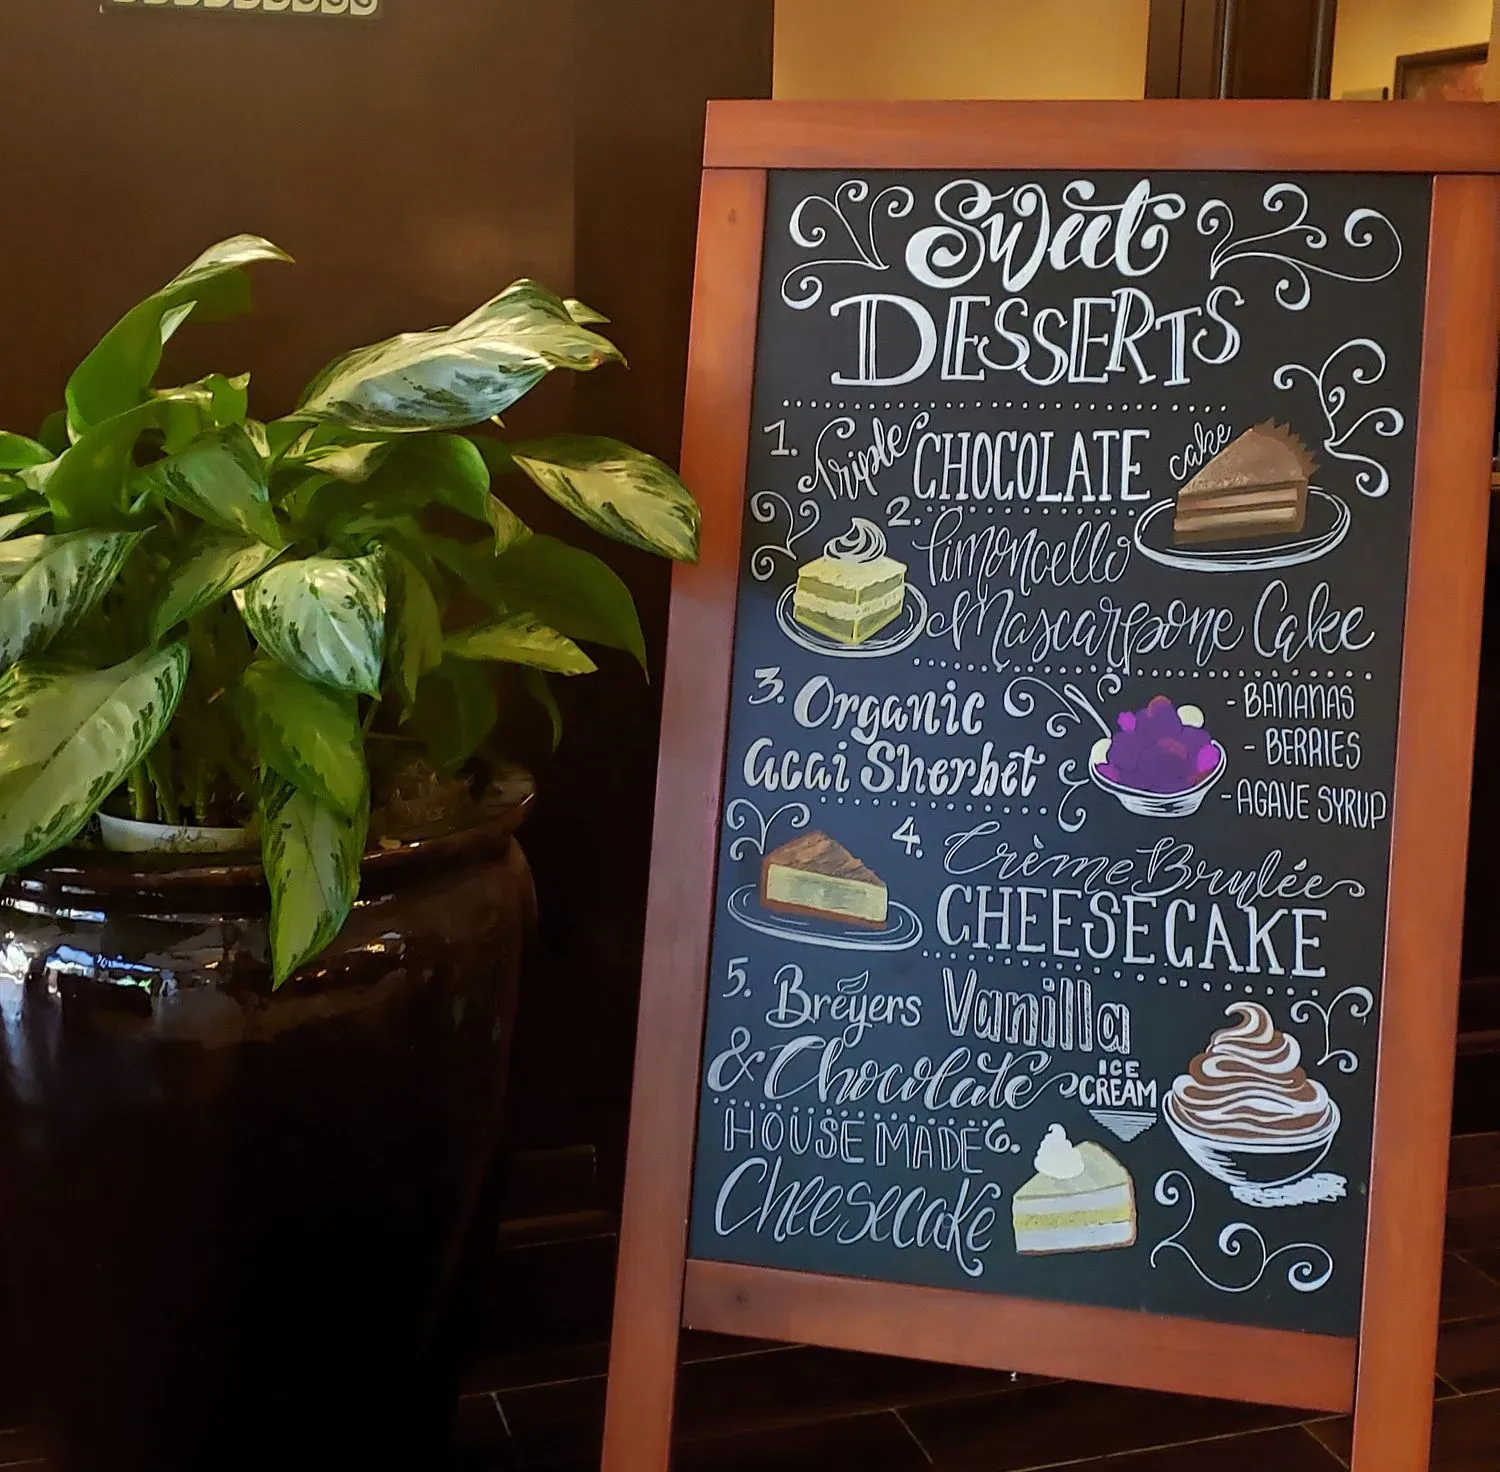 Sweet
DESSERTS
1. Triple CHOCOLATE cake
2. Limoncello
Mascarpone Cake
3. Organic
Acai Sherbet
- BANANAS
- BERRIES
- AGAVE SYRUP
4. Crème Brulée
CHEESECAKE
5. Breyers Vanilla
& Chocolate ICE
CREAM
HOUSE MADE 6.
Cheesecake